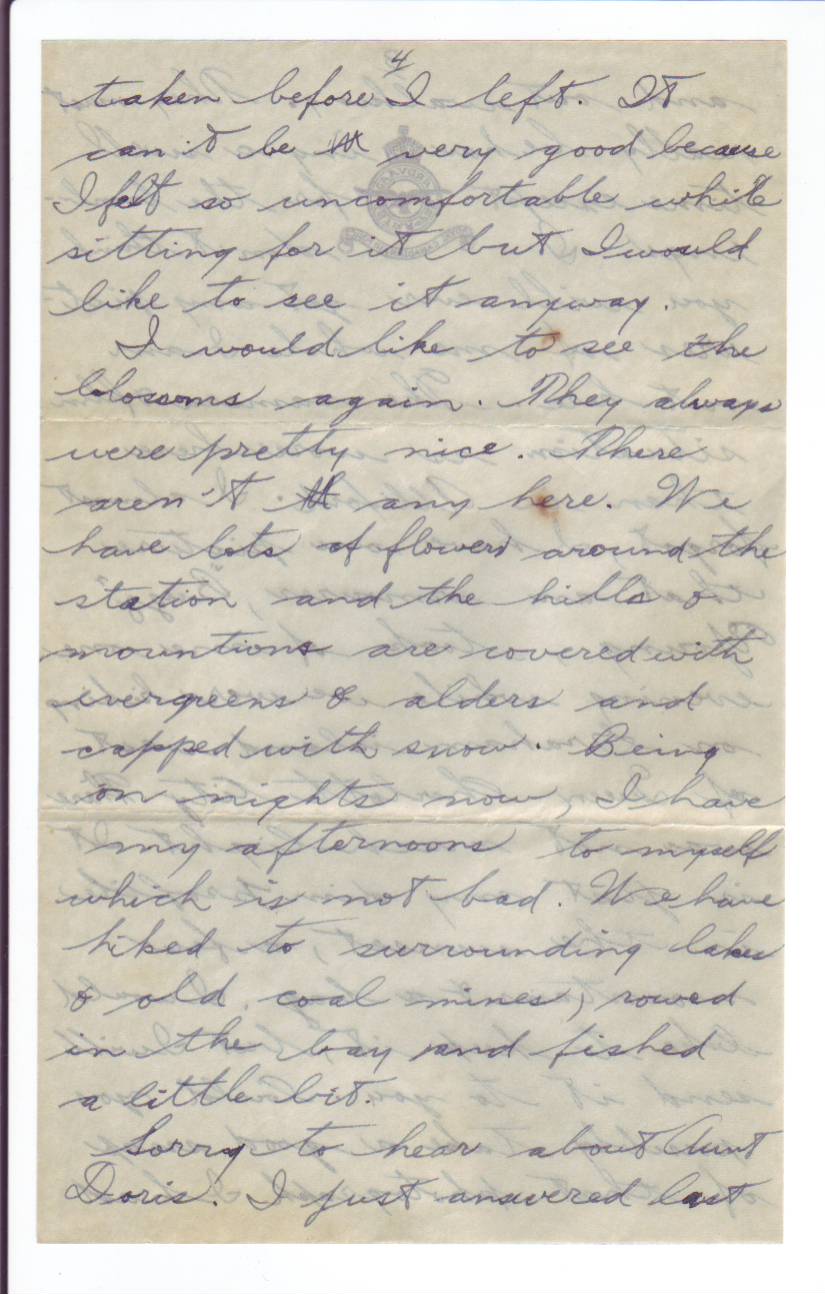 4
taken before I left. It
can't be very good because
I felt so uncomfortable while
sitting for it but I would
like to see it anyway.
I would like to see the
blossoms again. They always
were pretty nice. There
aren't any here. We
have lots of flowers around the
station and the hills &
mountions are covered with
evergreens & alders and
capped with snow. Being
on nights now, I have
my afternoons to myself
which is not bad. We have
hiked to surrounding lakes
& old coal mines, rowed
in the bay and fished
a little bit.
Sorry to hear about Aunt
Doris. I just answered last